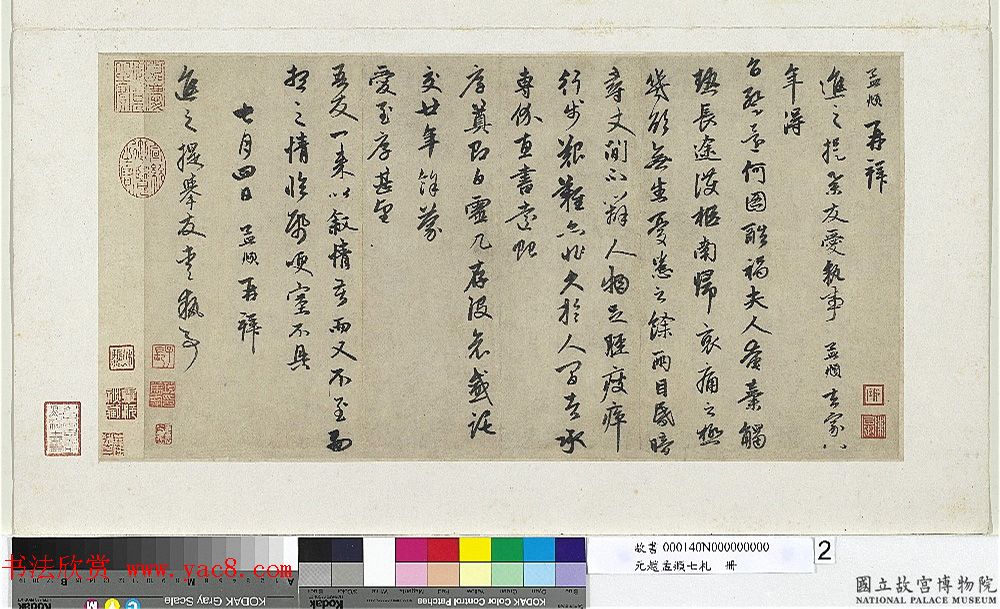 孟頫再拜
進之提舉友愛執事 孟頫去家八
年得
旨暫還何圖酷禍夫人奄棄觸
熱長途護柩南歸哀痛之極
幾欲無生憂患之餘兩目昏暗
尋丈間不辨人物足脛瘦瘁
行步艱難亦非久於人間者承
專价惠書遠貺
厚奠即白靈几存沒哀感託
交廿年餘蒙
愛至厚甚望
吾友一來以叙情苦而又不至
之情臨紙哽塞不具
七月四日 孟頫再拜
進之提舉友愛執事
书法欣赏 www.yac8.com
KODAK Gray Scale
KODAK Color Control Patches
故書 000140N000000000
元趙孟頫七札 冊
2
國立故宮博物院
NATIONAL PALACE MUSEUM